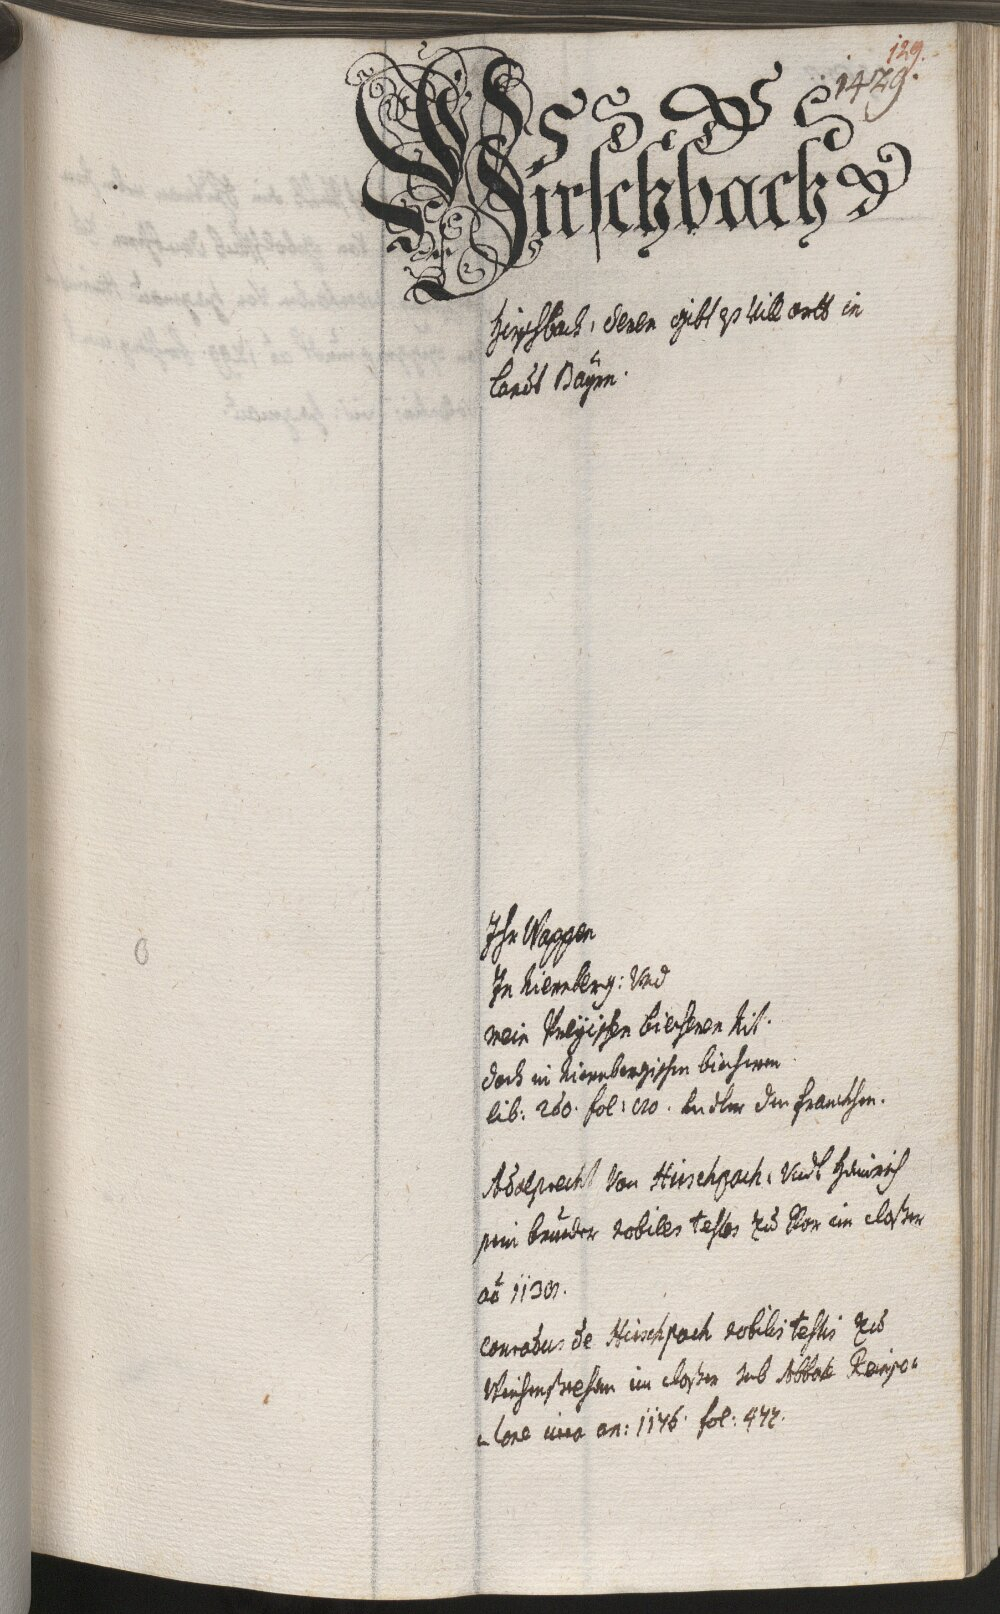 129.
1429.
Hirschbach
Hirschbach, deren gibt es vill ortt in
landt Bayrn.
Ihr Wappen
In Niernberg: Und
mein Preyischen biechern nit.
doch in Niernbergischen biechern
lib: 260. fol: 120. under den franckhen.
Adalprecht von Hirschpach, vndt Heinrich
sein brueder nobiles testes zu Ror im closter
ao 1130.
Conradus de Hirschpach nobilis testis zu
Weichenstephan im closter sub Abbate
circa an: 1146. fol: 477.